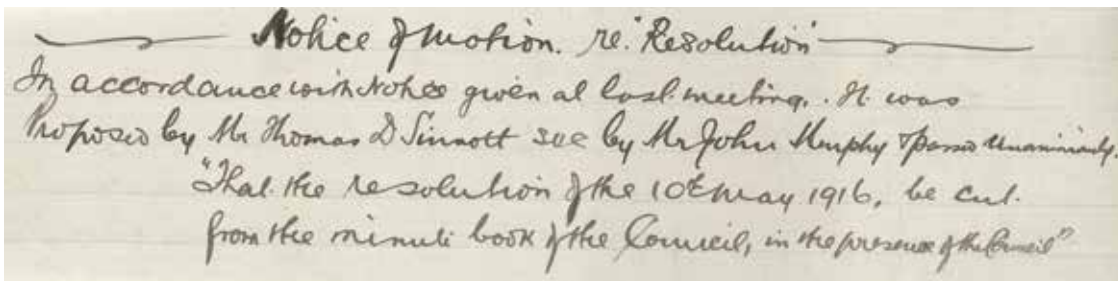 Notice of Motion. re. "Resolution"
In accordance with Notice given at last meeting. It was
Proposed by Mr Thomas D Sinnott sec by Mr John Murphy & passed Unanimously.
"That the resolution of the 10th May 1916, be cut.
from the minute book of the Council, in the presence of the Council"